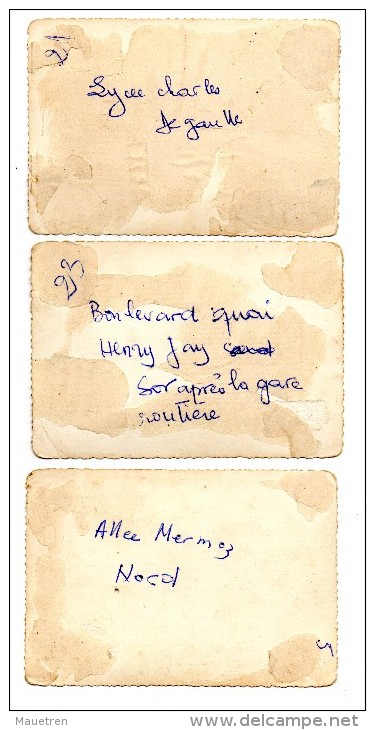 21
Lycee charles
de gaulle
23
Boulevard quai
Henry Jay
Sor après la gare
routière
Allee Mermoz
Nord
5
Mauetren
www.delcampe.net